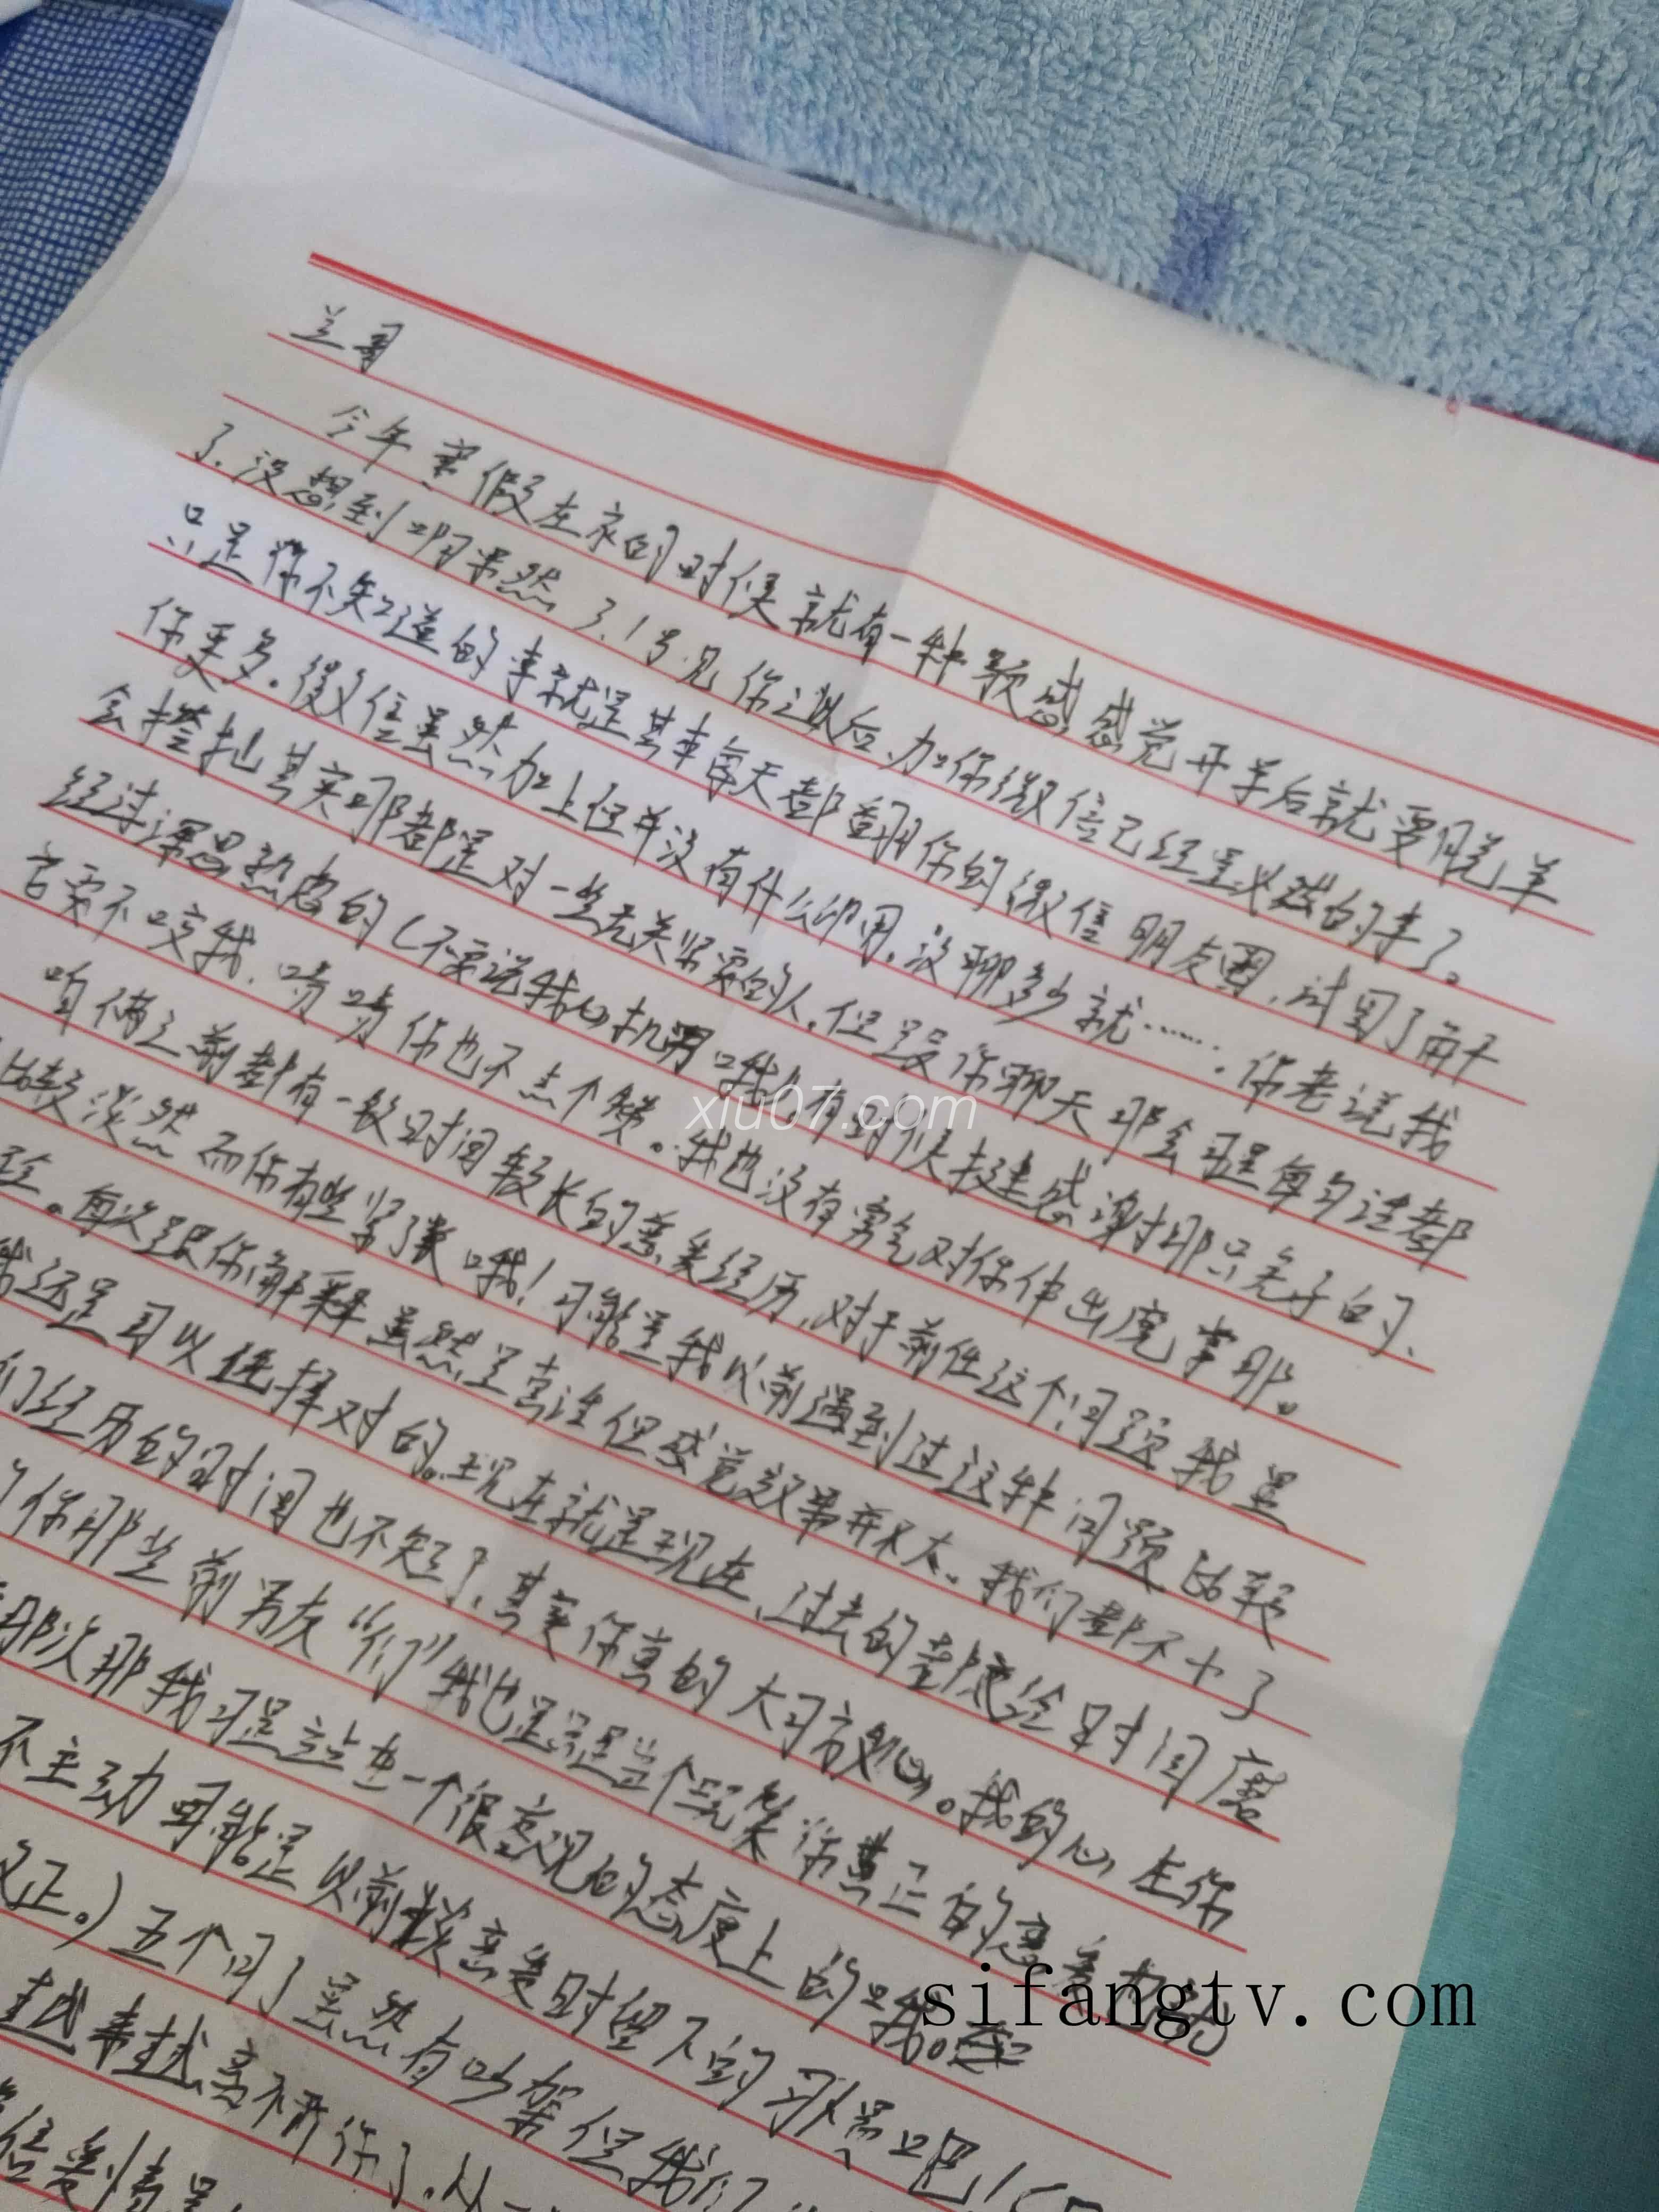 兰哥
今年寒假在家的时候就有一种预感感觉开学后就要脱单
了.没想到啊果然3.1号见你之后,加你微信已经是必然的事了。
只是你不知道的事就是其实每天都翻你的微信朋友圈,试图了解
你更多。微信虽然加上但并没有什么卵用,没聊多少就……. 你老说我
会撩拨其实那都是对一些无关紧要的人,但跟你聊天那会可是每句话都
经过深思熟虑的(不要说我心机男哦)有时候挺感谢那只兔子的、
言家不咬我,啃啃你也不点个赞。我也没有勇气对你伸出魔掌耶。
咱俩之前都有一段时间较长的恋爱经历,对于前任这个问题我是
比较淡然而你有些紧张哦!可能是我以前遇到过这种问题比较
。每次跟你解释虽然是真话但感觉效果并不大。我们都不小了
我还是可以选择对的。现在就是现在,过去的都随给时间磨
们经历的时间也不短了,其实你真的大可放心。我的心在你
你那些前男友“们”我也是只是当个玩笑你真正的意义
那次那我可是站在一个很客观的态度上的哦。
不主动可能是以前谈恋爱时留下的习惯吧!
改正。)五个月了虽然有吵架但我们
越来越离不开你了.从一
xiu07.com
sifangtv.com